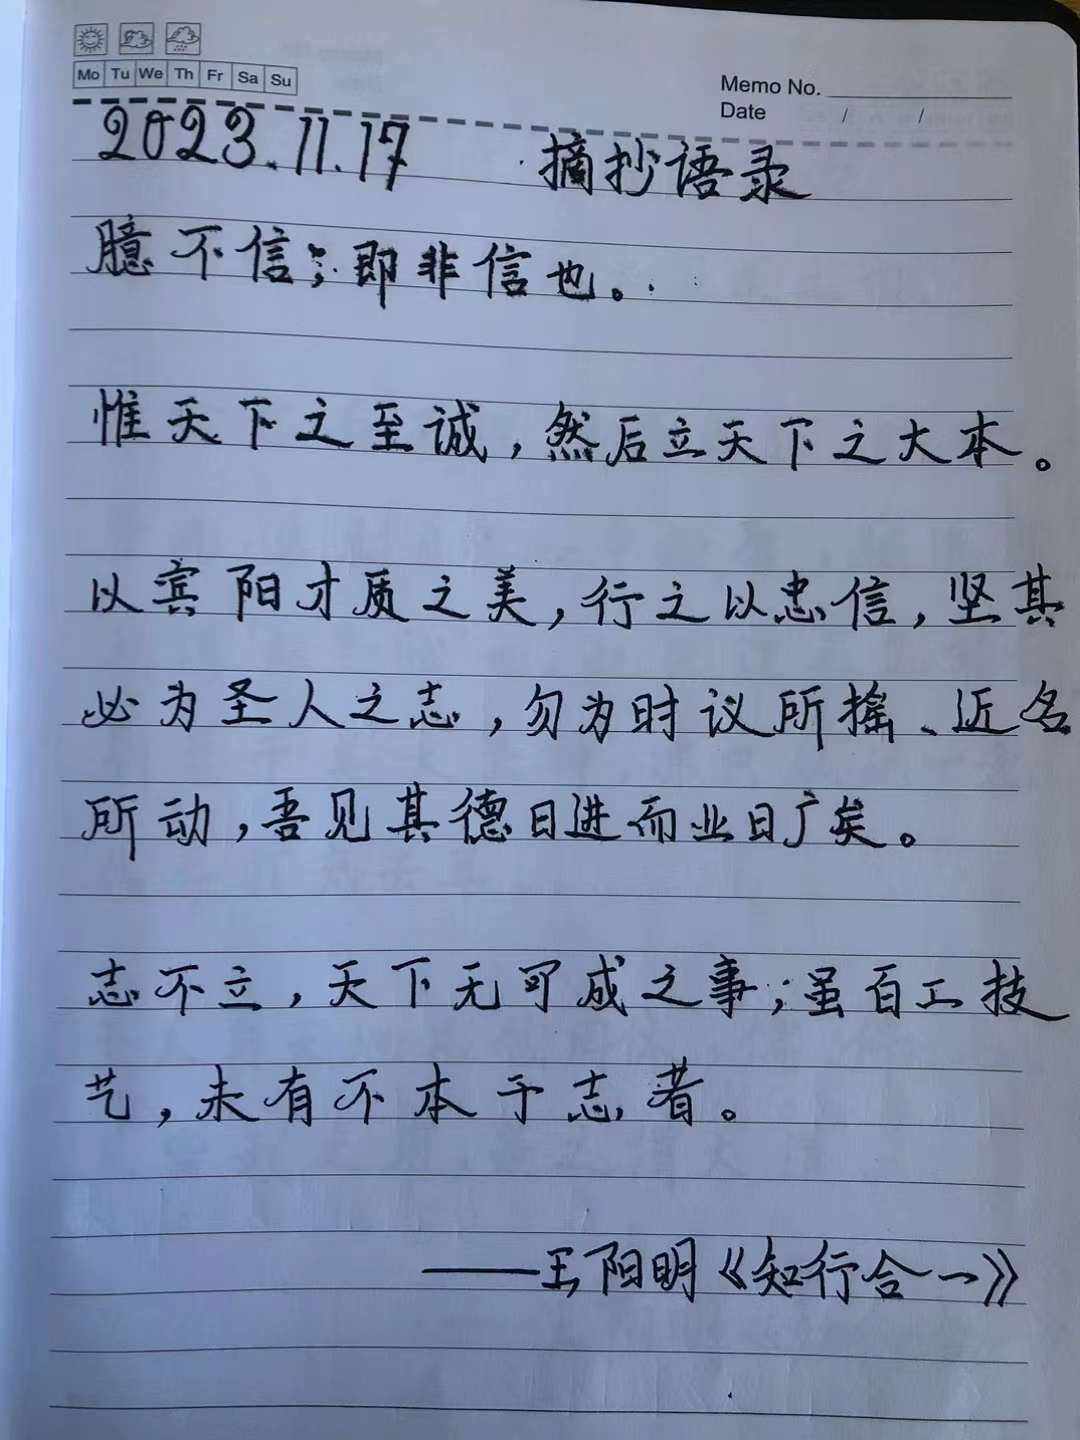 Mo Tu We Th Fr Sa Su
Memo No.
Date / /
2023.11.17 摘抄语录
臆不信；即非信也。
惟天下之至诚，然后立天下之大本。
以宾阳才质之美，行之以忠信，坚其
必为圣人之志，勿为时议所摇、近名
所动，吾见其德日进而业日广矣。
志不立，天下无可成之事；虽百工技
艺，未有不本于志者。
——王阳明《知行合一》